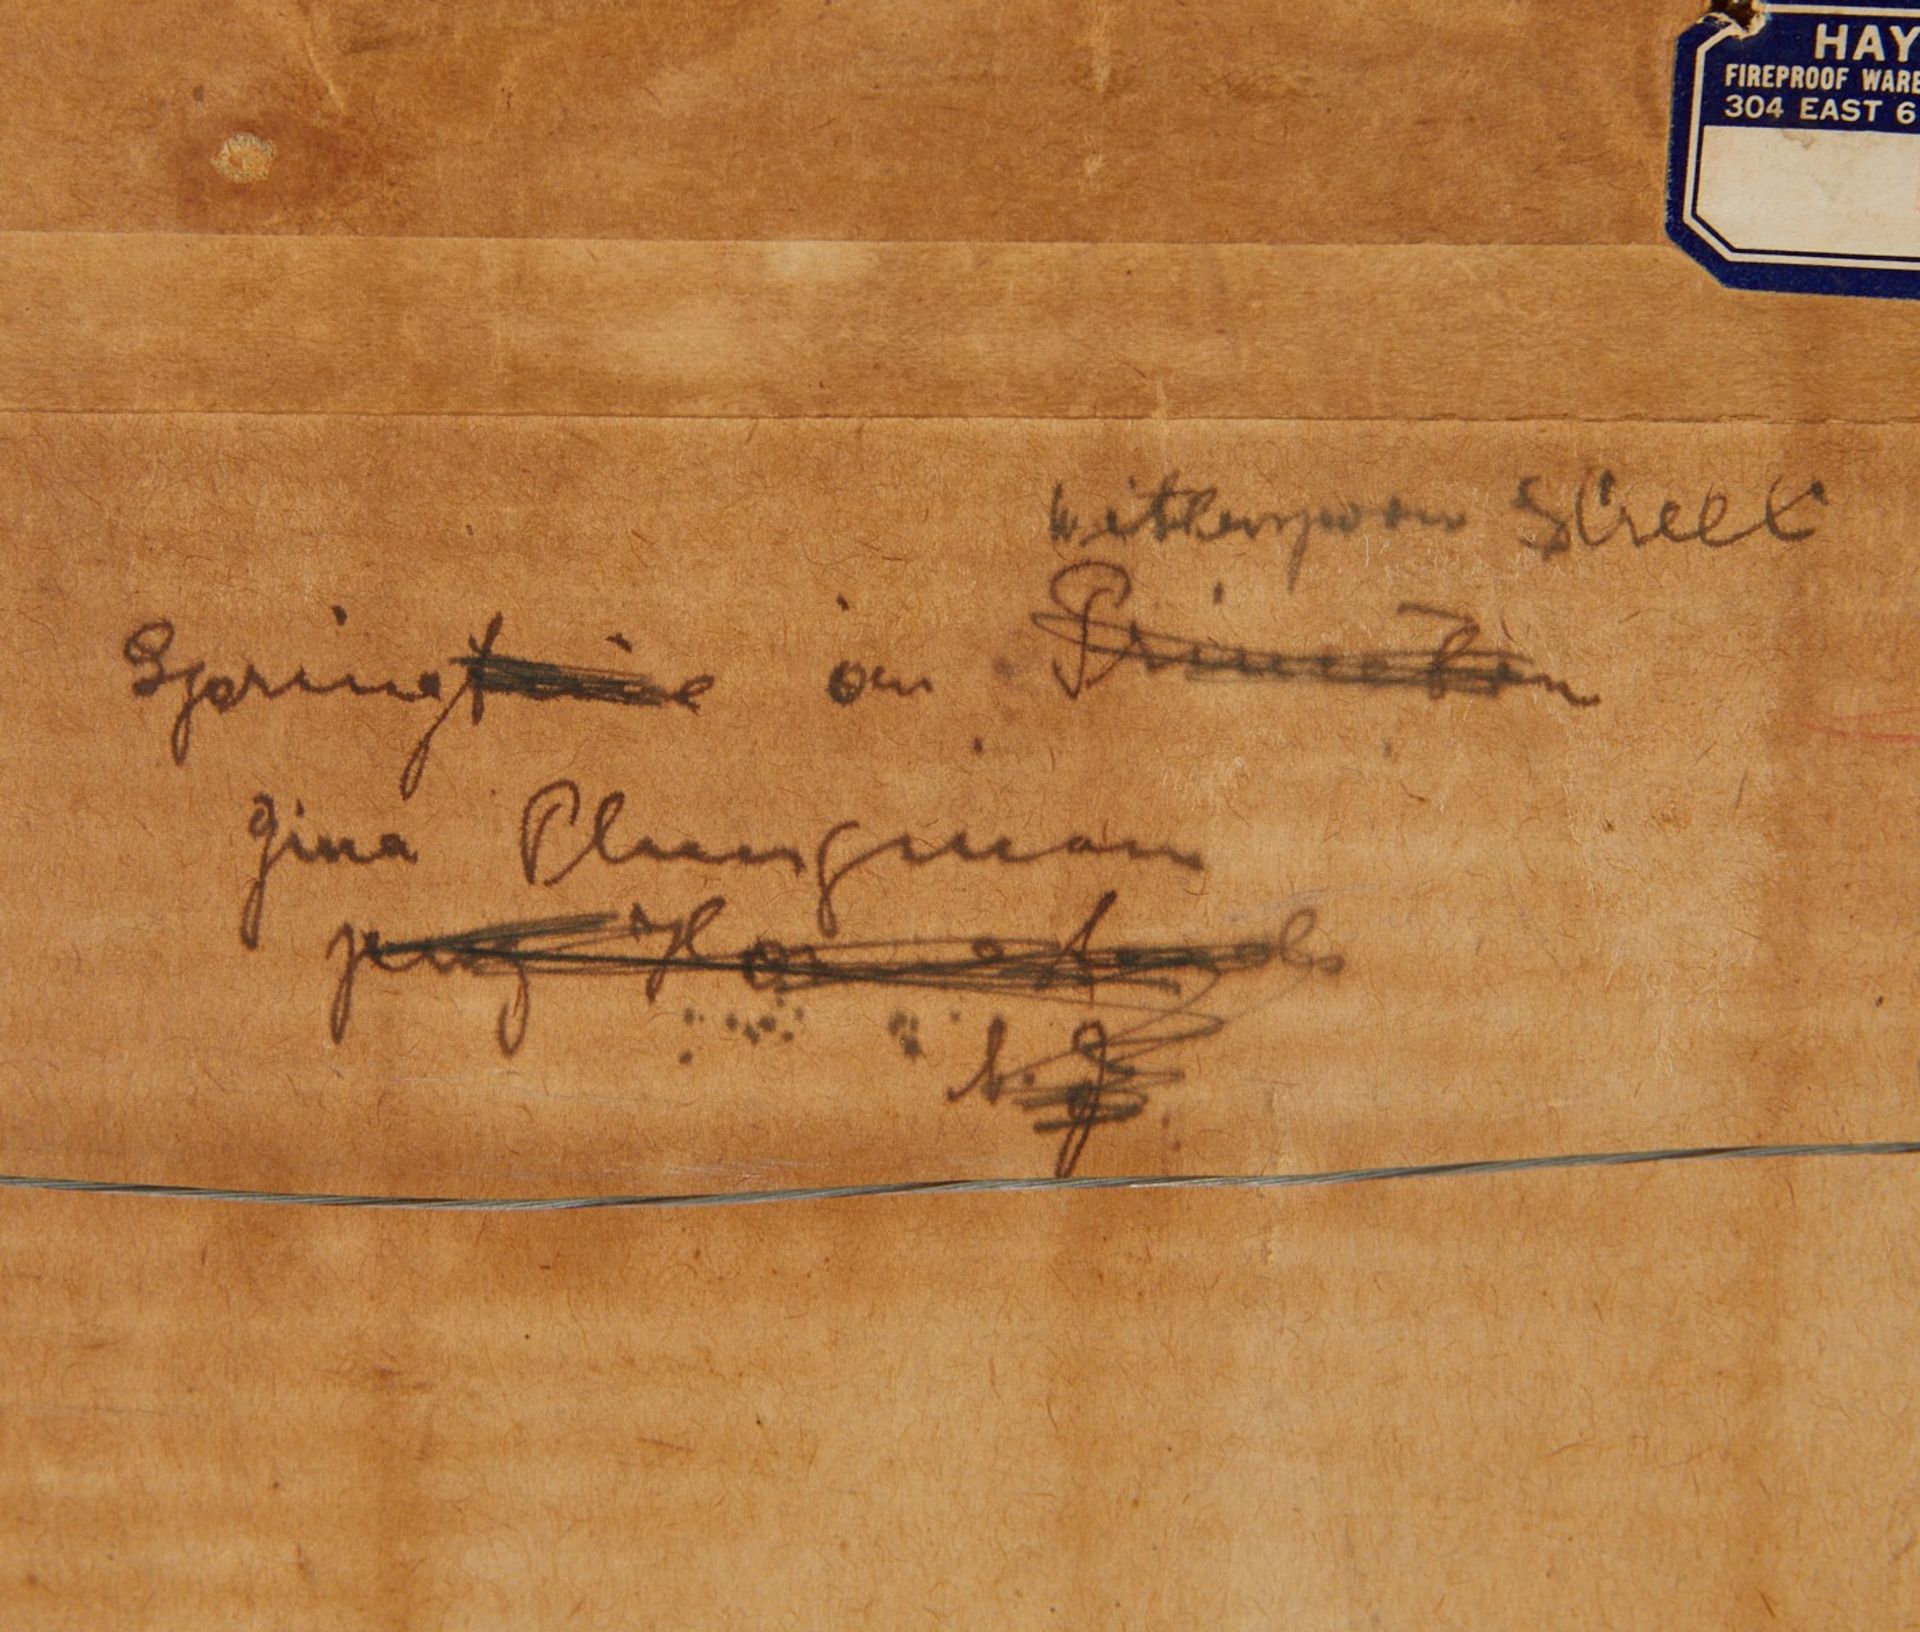 HAY
FIREPROOF WARE
304 EAST 6
Witherspoon Street
Springtime on Princeton
Gina Plungman
N.J